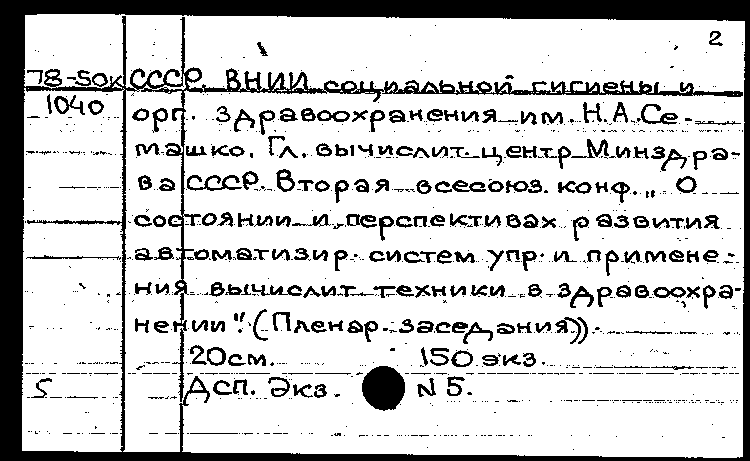 2
78-50к СССР. ВНИИ социальной гигиены и
1040 орг. здравоохранения им. Н.А.Се-
машко. Гл. вычислит. центр Минздра-
ва СССР. Вторая всесоюз. конф. „ О
состоянии и перспективах развития
автоматизир. систем упр. и примене-
ния вычислит. техники в здравоохра-
нении". (Пленар. заседания)).
20см. 150 экз.
5 Дсп. Экз. N 5.